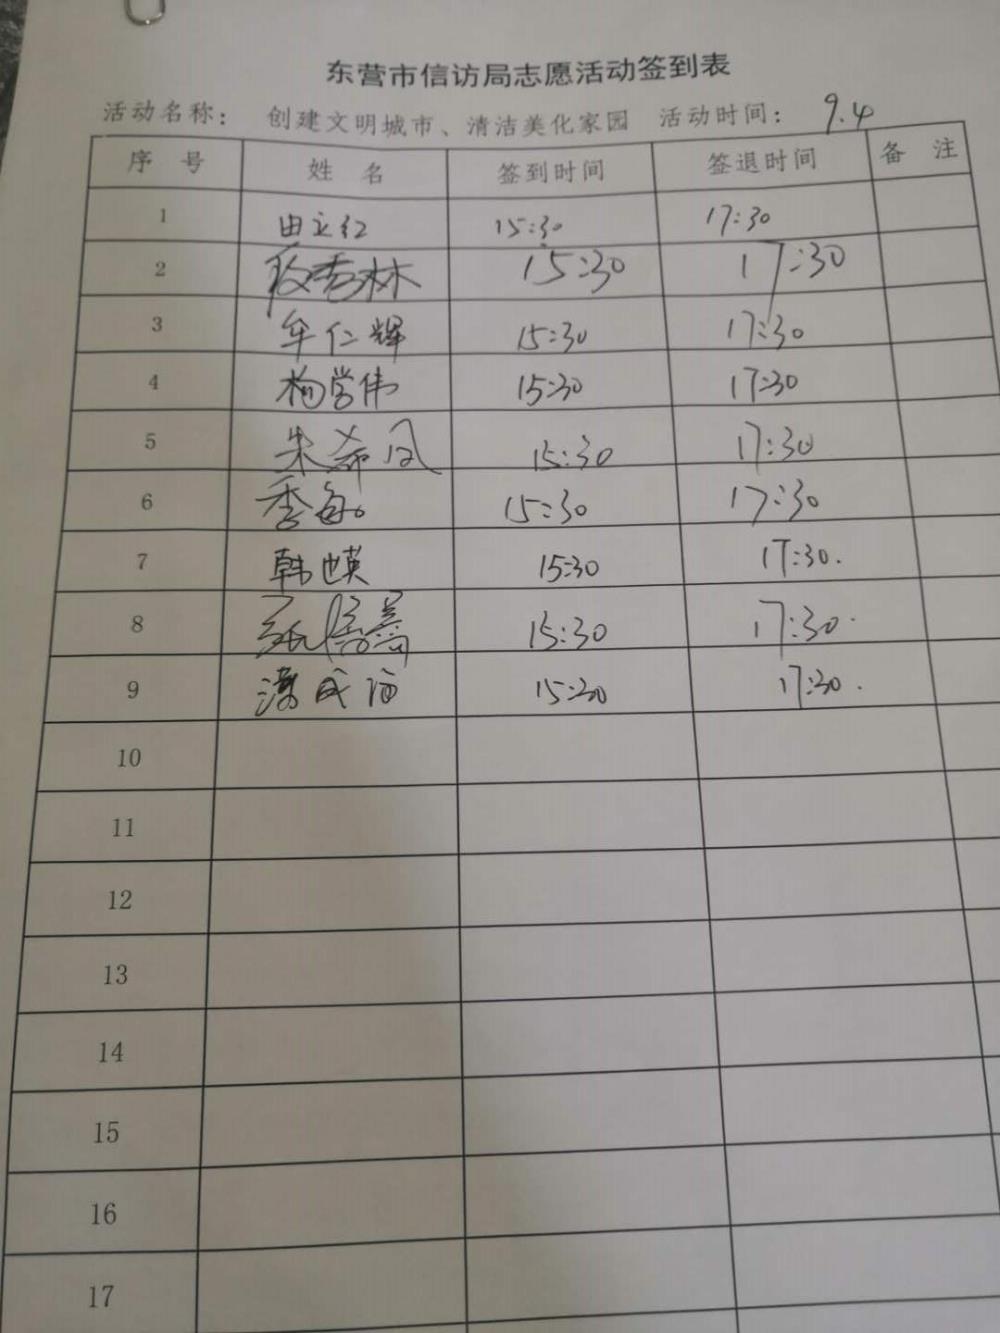 东营市信访局志愿活动签到表
活动名称： 创建文明城市、清洁美化家园 活动时间： 9.4
序 号 姓 名 签到时间 签退时间 备 注
1 由立红 15:30 17:30
2 秀林 15:30 17:30
3 牟仁辉 15:30 17:30
4 杨学伟 15:30 17:30
5 朱希凤 15:30 17:30
6 季敏 15:30 17:30
7 韩瑛 15:30 17:30.
8 15:30 17:30.
9 成 15:30 17:30.
10
11
12
13
14
15
16
17